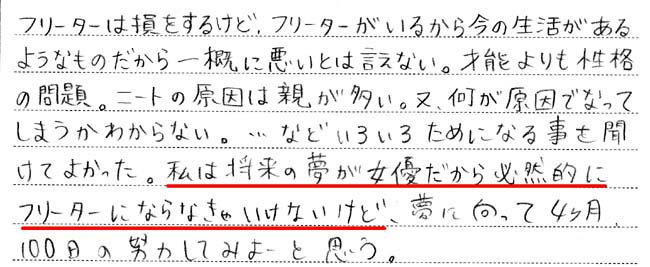 フリーターは損をするけど、フリーターがいるから今の生活がある
ようなものだから一概に悪いとは言えない。才能よりも性格
の問題。ニートの原因は親が多い。又、何が原因でなって
しまうかわからない。…などいろいろためになる事を聞
けてよかった。私は将来の夢が女優だから必然的に
フリーターにならなきゃいけないけど、夢に向って4ヶ月、
100日の努力してみよーと思う。